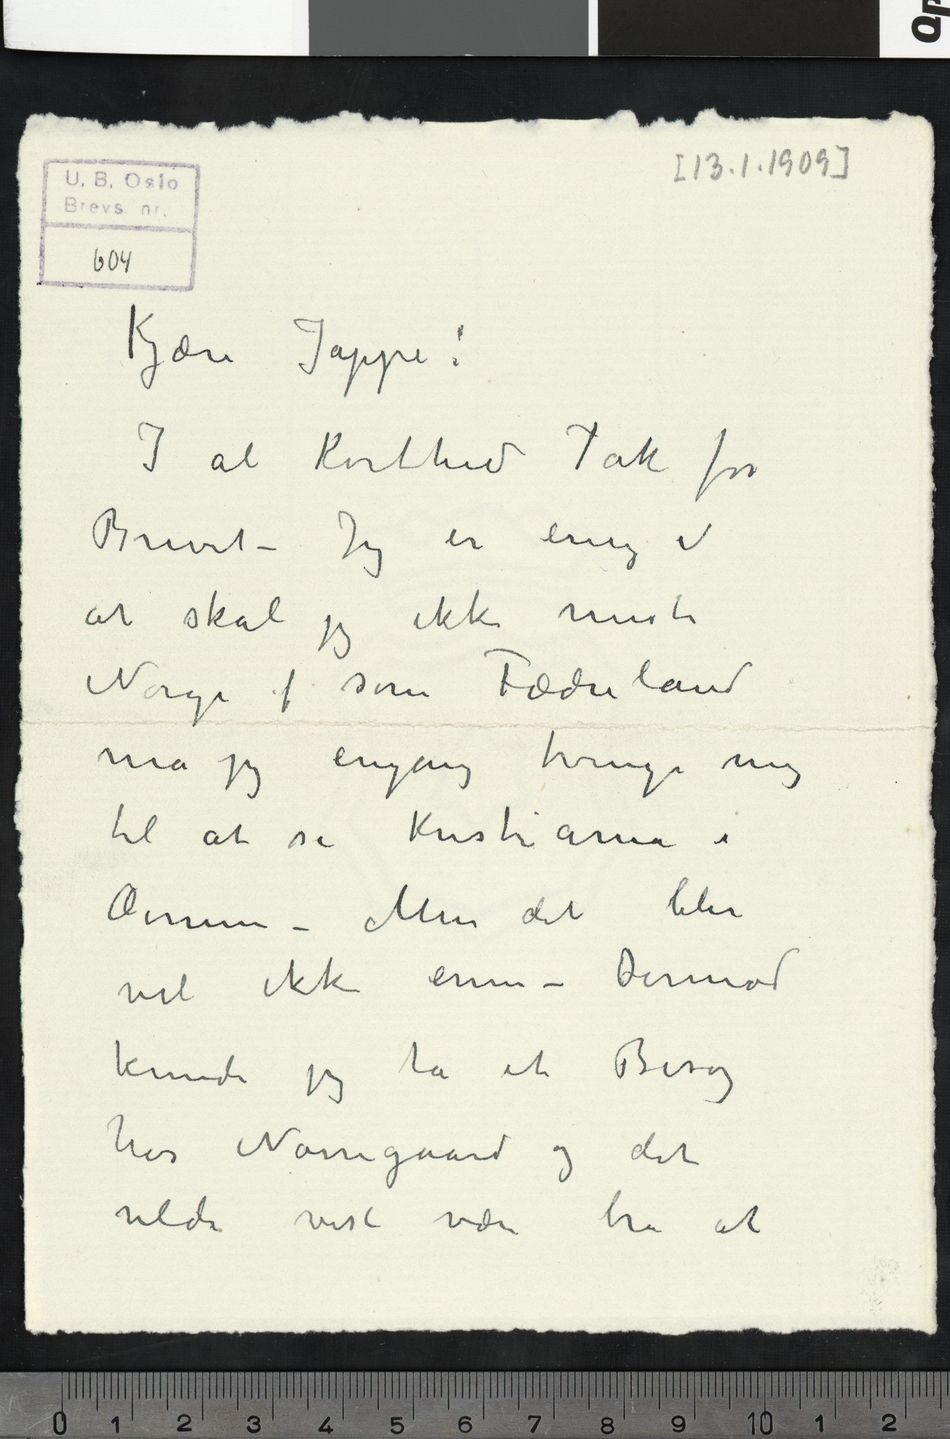 [13.1.1909]
U. B. Oslo
Brevs. nr.
604
Kjære Jappe!
I al Korthed Tak for
Brevet – Jeg er enig i
at skal jeg ikke miste
Norge som Fædreland
må jeg engang tvinge mig
til at se Kristiania i
Øinene – Men det blir
vel ikke ennu – Derimod
kunde jeg ta et Besøg
hos Nørregaard og det
vilde vist være bra at
0 1 2 3 4 5 6 7 8 9 10 1 2